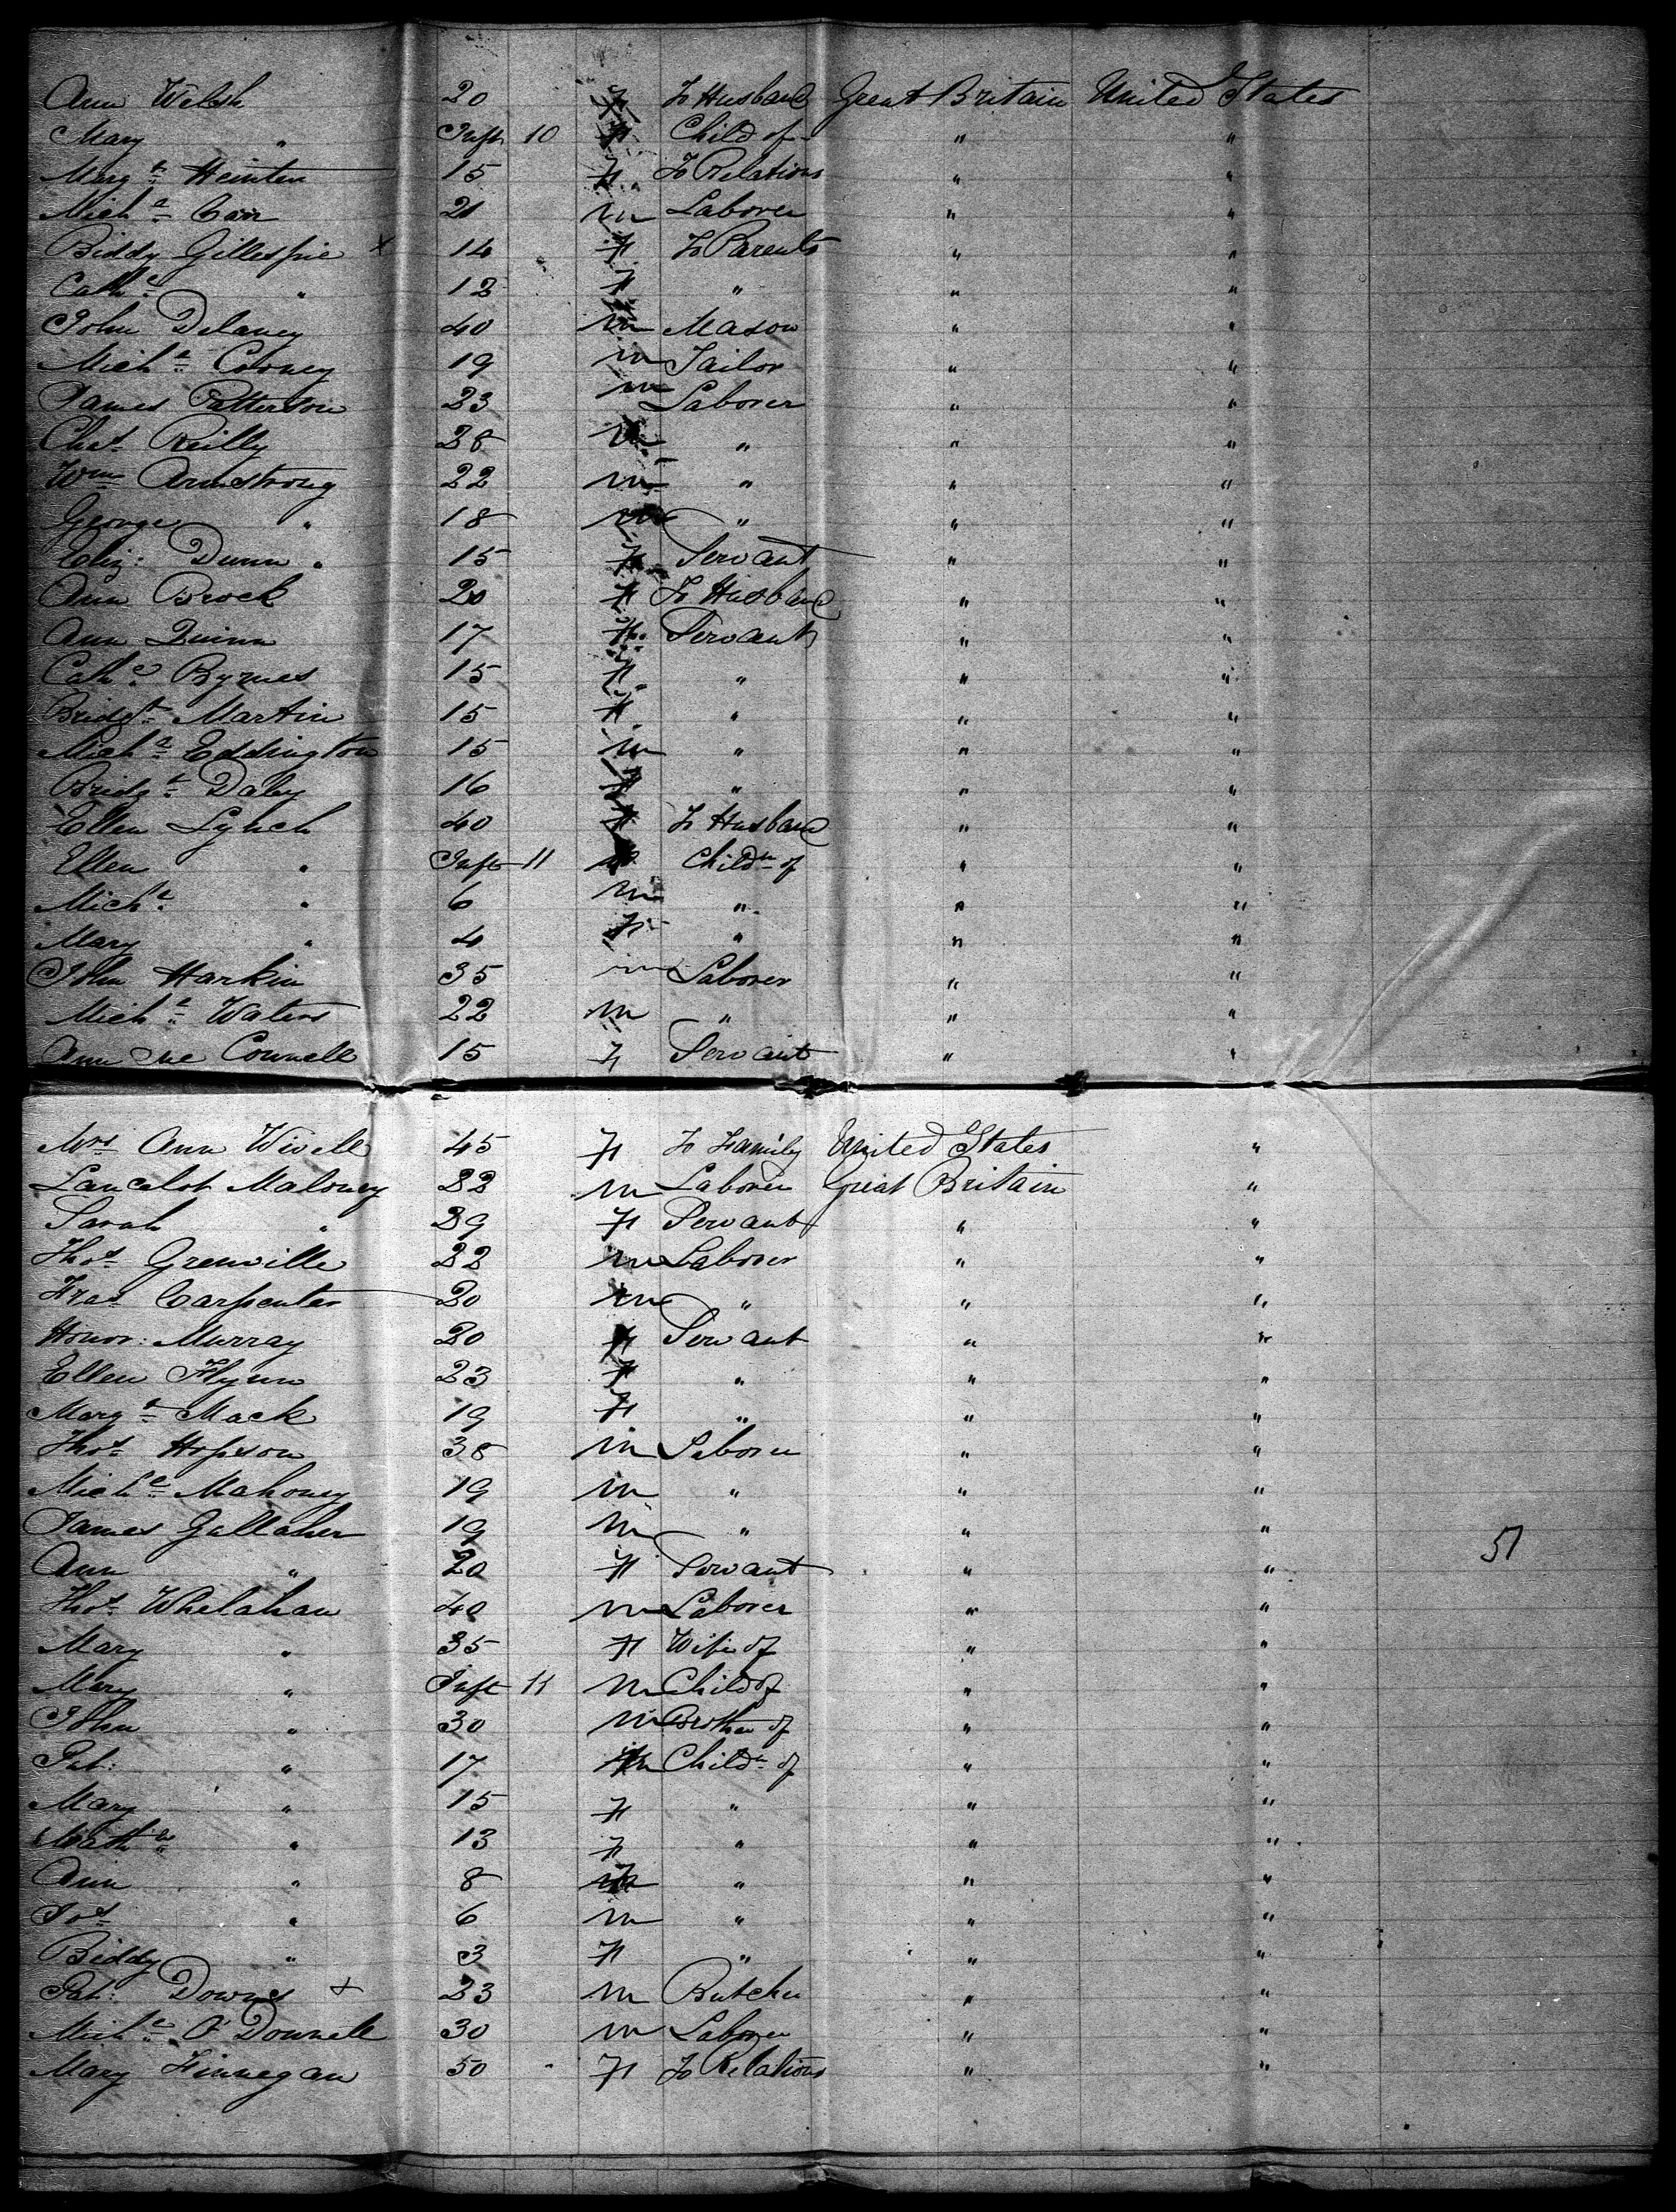 Ann Welsh 20 F To Husband Great Britain United States
Mary " Inft 10 F Child of " "
Margt Heinten 15 F To Relations " "
Michl Carr 21 M Laborer " "
Biddy Gillespie x 14 F To Parents " "
Cathe " 12 F " " "
John Delaney 40 M Mason " "
Michl Cooney 19 M Tailor " "
James Patterson 23 M Laborer " "
Chas Reilly 28 M " " "
Wm Armstrong 22 M " " "
George " 18 M " " "
Eliz: Dunn " 15 F Servant " "
Ann Brock 20 F To Husband " "
Ann Quinn 17 F Servant " "
Cathe Byrnes 15 F " " "
Bridgt Martin 15 F " " "
Michl Eddington 15 M " " "
Bridgt Daly 16 F " " "
Ellen Lynch 40 F To Husband " "
Ellen " Inft 11 Childn of " "
Michl " 6 M " " "
Mary " 4 F " " "
John Harkin 35 M Laborer " "
Michl Waters 22 M " " "
Ann Mc Connell 15 F Servant " "
Mrs Ann Wivell 45 F To Family United States "
Lancelot Maloney 22 M Laborer Great Britain "
Sarah " 29 F Servant " "
Thos Grenville 22 M Laborer " "
Fras Carpenter 20 M " " "
Honor: Murray 20 F Servant " "
Ellen Flynn 23 F " " "
Margt Mack 19 F " " "
Thos Hopson 38 M Laborer " "
Michl Mahoney 19 M " " "
James Gallaher 19 M " " "
Ann " 20 F Servant " " 51
Thos Whelahan 40 M Laborer " "
Mary " 35 F Wife of " "
Mary " Inft 11 M Child of " "
John " 30 M Brother of " "
Pat: " 17 M Childn of " "
Mary " 15 F " " "
" 13 F " " "
Ann " 8 " " "
Jos " 6 M " " "
Biddy " 3 F " " "
Pat: Downes x 23 M Butcher " "
Michl O'Donnell 30 M Laborer " "
Mary Finnegan 50 F To Relations " "